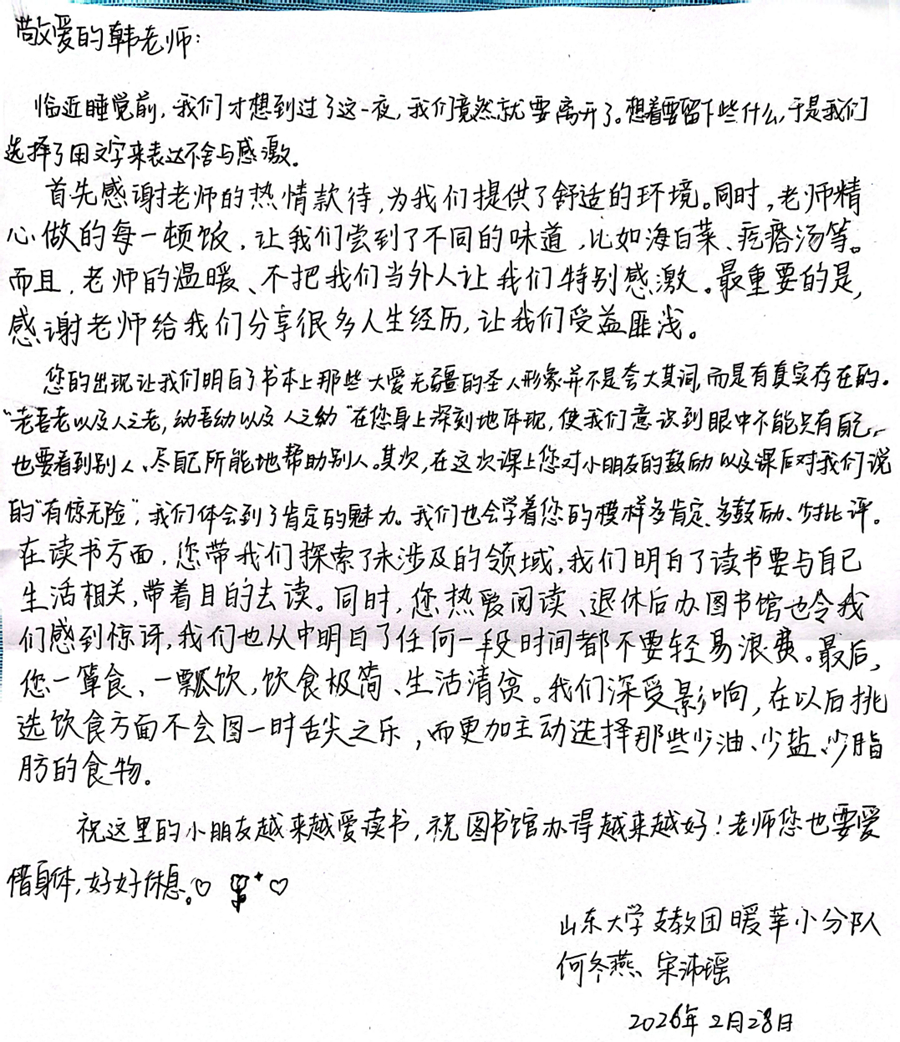 敬爱的韩老师:
临近睡觉前,我们才想到过了这一夜,我们竟然就要离开了。想着要留下些什么,于是我们
选择了用文字来表达不舍与感激。
首先感谢老师的热情款待,为我们提供了舒适的环境。同时,老师精
心做的每一顿饭,让我们尝到了不同的味道,比如海白菜、疙瘩汤等。
而且,老师的温暖、不把我们当外人让我们特别感激。最重要的是,
感谢老师给我们分享很多人生经历,让我们受益匪浅。
您的出现让我们明白了书本上那些大爱无疆的圣人形象并不是夸大其词,而是有真实存在的。
“老吾老以及人之老,幼吾幼以及人之幼”在您身上深刻地体现,使我们意识到眼中不能只有自己,
也要看到别人、尽自己所能地帮助别人。其次,在这次课上您对小朋友的鼓励以及课后对我们说
的“有惊无险”,我们体会到了肯定的魅力。我们也会学着您的模样多肯定、多鼓励、少批评。
在读书方面,您带我们探索了未涉及的领域,我们明白了读书要与自己
生活相关,带着目的去读。同时,您热爱阅读、退休后办图书馆也令我
们感到惊讶,我们也从中明白了任何一段时间都不要轻易浪费。最后,
您一箪食、一瓢饮,饮食极简、生活清贫。我们深受影响,在以后挑
选饮食方面不会图一时舌尖之乐,而更加主动选择那些少油、少盐、少脂
肪的食物。
祝这里的小朋友越来越爱读书,祝图书馆办得越来越好!老师您也要爱
惜身体,好好休息。♡ ♡
山东大学支教团暖莘小分队
何冬燕 宋沛瑶
2026年2月28日